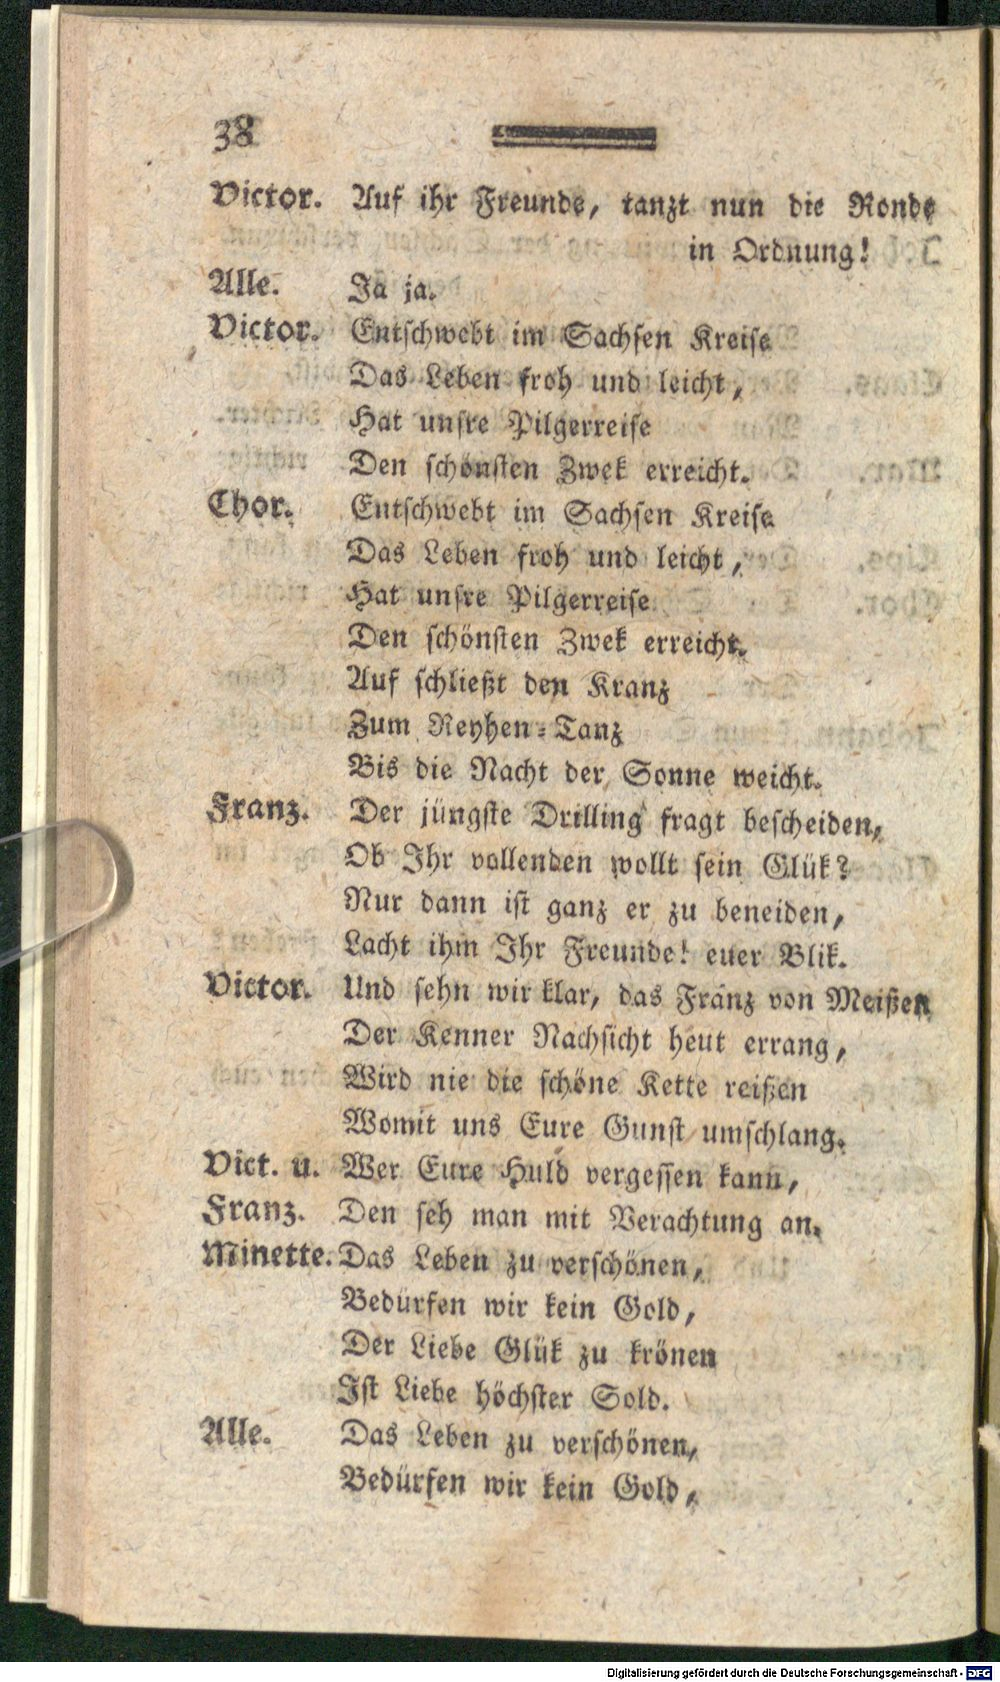 38
Victor. Auf ihr Freunde, tanzt nun die Ronde
in Ordnung!
Alle. Ja ja.
Victor. Entschwebt im Sachsen Kreise
Das Leben froh und leicht,
Hat unsre Pilgerreise
Den schönsten Zwek erreicht.
Chor. Entschwebt im Sachsen Kreise
Das Leben froh und leicht,
Hat unsre Pilgerreise
Den schönsten Zwek erreicht.
Auf schließt den Kranz
Zum Reyhen-Tanz
Bis die Nacht der Sonne weicht.
Franz. Der jüngste Drilling fragt bescheiden,
Ob Ihr vollenden wollt sein Glük?
Nur dann ist ganz er zu beneiden,
Lacht ihm Ihr Freunde! euer Blik.
Victor. Und sehn wir klar, das Franz von Meißen
Der Kenner Nachsicht heut errang,
Wird nie die schöne Kette reißen
Womit uns Eure Gunst umschlang.
Vict. u. Wer Eure Huld vergessen kann,
Franz. Den seh man mit Verachtung an.
Minette. Das Leben zu verschönen,
Bedürfen wir kein Gold,
Der Liebe Glük zu krönen
Ist Liebe höchster Sold.
Alle. Das Leben zu verschönen,
Bedürfen wir kein Gold,
Digitalisierung gefördert durch die Deutsche Forschungsgemeinschaft - DFG